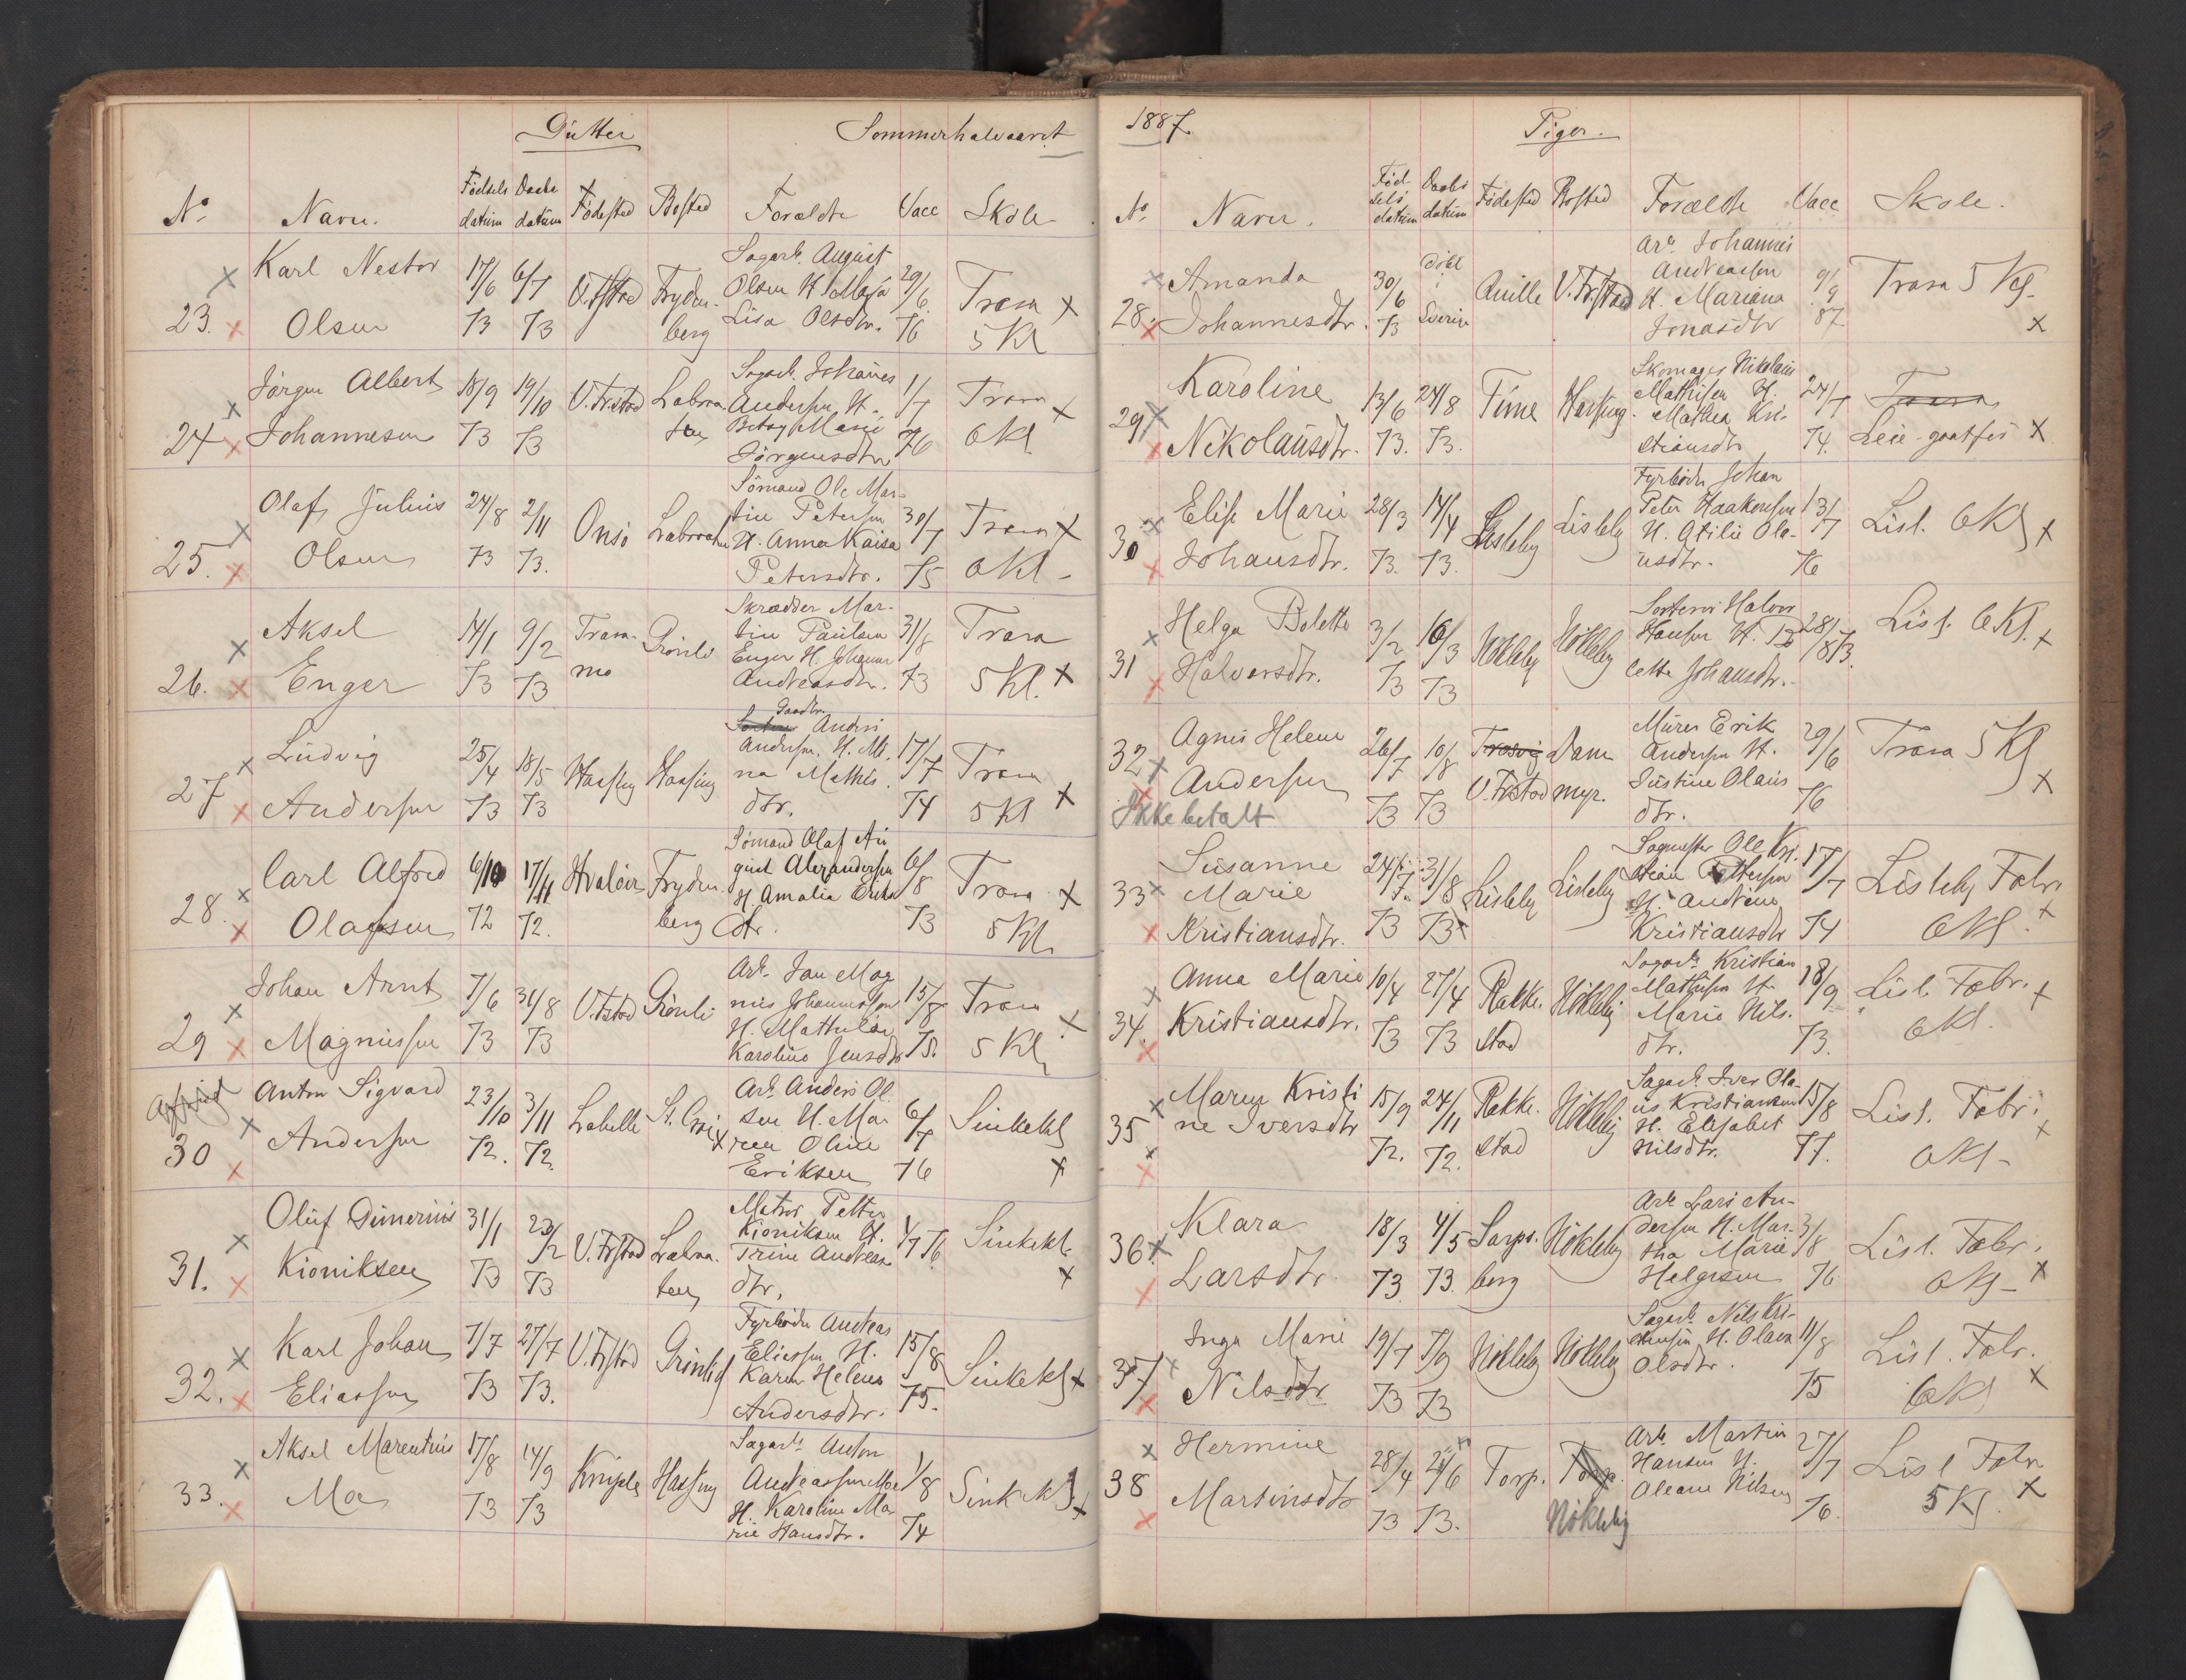 Gutter Sommerhalvaaret
No. Navn. Fødsels datum Daabs datum Fødested Bosted Forældre Vacc Skole
23. Karl Nestor Olsen 17/6 73 6/7 73 V. Frstad Fryden-berg Sagarb. August Olsen H. Maja Lisa Olsdtr. 29/6 76 Trara 5 Kl
24 Jørgen Albert Johannesen 18/9 73 19/10 73 V. Frstad Labraaten Sagarb. Johannes Andersen H. Betsy Marie Jørgensdtr 1/7 76 Trara 6 Kl
25. Olaf Julius Olsen 24/8 73 2/11 73. Onsø Labraaten Sømand Ole Martin Petersen H. Anna Kaisa Petersdtr. 30/7 75 Trara 6 Kl -
26. Aksel Enger 14/1 73 9/2 73 Trara-mo Grønli Skrædder Martin Paulsen Enger H. Johanne Andreasdtr. 31/8 73 Trara 5 Kl.
27 Ludvig Andersen 25/4 73 18/5 73 Haasing Haasing Anders Andersen, H. Mina Mathisdtr. 17/7 74 Trara 5 Kl
28. Carl Alfred Olafsen 6/10 72 17/11 72. Hvaløer Fryden-berg Sømand Olaf August Alexandersen H Amalia Eriksdtr. 6/8 73 Trara 5 Kl
29 Johan Arnt Magnussen 7/6 73 31/8 73 V. Frstad Grønli Arb. Jan Magnus Johannessen H. Mathilde Karoline Jensdtr 15/8 75. Trara 5 Kl
30 Anton Sigvard Andersen 23/10 72. 3/11 72. Labelle St. Croix Arb. Anders Olsen H. Maren Oline Eriksen 6/7 76 Sinkekl
31. Oluf Dimerius Kioniksen 31/1 73 23/2 73 V. Frstad Labraaten Matros Petter Kioniksen H. Trine Andreasdtr. 1/7 76. Sinkekl.
32. Karl Johan Eliassen 7/7 73 27/7 73. V. Frstad Grønli Fyrbøder Andreas Eliassen H. Karen Helene Andersdtr. 15/8 75. Sinkekl
33. Aksel Marentius Moe 17/8 73 14/9 73 Kniple Hassing Sagarb. Anton Andreassen Moe H. Karoline Marie Hansdtr. 1/8 74 Sinkekl
1887. Piger.
No. Navn. Fødsels datum Daabs datum Fødested Bosted Forældre Vacc Skole.
28. Amanda Johannesdtr. 30/6 73 Døbt i Sverige Quille V. Frstad Arb. Johannes Andreassen H. Mariana Jonasdtr 9/9 87. Trara 5 Kl.
29 Karoline Nikolausdtr. 13/6 73. 24/8 73. Tune Hassing. Skomager Nikolaus Mathisen H. Mathea Kristiansdtr 24/7 74. Trara
30 Elise Marie Johansdtr. 28/3 73. 14/4 73. Lisleby Lisleby Fyrbøder Johan Peter Haakensen H. Otilie Olausdtr. 13/7 76 Lisl. 6 Kl
31 Helga Bolette Halvorsdtr. 3/2 73 16/3 73 Nökleby Nökleby Sorterer Halvor Hansen H. Bolette Johansdtr. 28/8 73. Lisl. 6 Kl.
32 Agnes Helene Andersen 26/7 73 10/8 73 Trosvig V. Frstad Dammyr. Murer Erik Andersen H. Justine Olausdtr. 29/6 76 Trara 5 Kl
Ikke betalt
33 Susanne Marie Kristiansdtr. 24/7 73 31/8 73 Lisleby Lisleby Sagmester Ole Kristian Pettersen H. Andrine Kristiansdtr 17/7 74 Lisleby Fabr. 6 Kl.
34. Anna Marie Kristiansdtr. 10/4 73 27/4 73 Rakkestad Nökleby Sagarb. Kristian Mathisen H. Marie Nilsdtr. 18/9 73. Lisl. Fabr. 6 Kl.
35 Maren Kristine Iversdtr 15/9 72. 24/11 72. Rakkestad Nökleby Sagarb. Iver Olaus Kristiansen H. Elisabet Nilsdtr. 15/8 77. Lisl. Fabr. 6 Kl -
36. Klara Larsdtr. 18/3 73. 4/5 73. Sarpsberg Nökleby Arb. Lars Andersen H. Martha Marie Helgesen 3/8 76 Lisl. Fabr. 6 Kl -
37 Inga Marie Nilsdtr. 19/7 73 7/9 73 Nökleby Nökleby Sagarb. Nils Kristensen H. Olava Olsdtr. 11/8 75 Lisl. Fabr. 6 Kl
38 Hermine Martinsdtr 28/4 73 24/6 73. Torp. Torp. Nökleby Arb. Martin Hansen H. Oleane Nilsen 27/7 76. Lisl Fabr. 5 Kl.